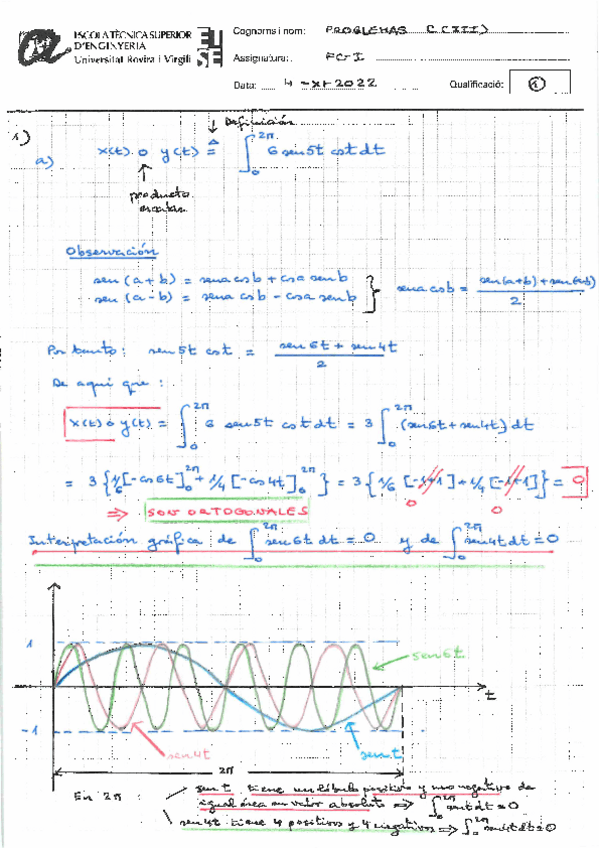 ESCOLA TÈCNICA SUPERIOR
D'ENGINYERIA
Universitat Rovira i Virgili
ETSE
Cognoms i nom: PROBLEMAS C (III)
Assignatura: FC-I
Data: 4-XI-2022
Qualificació: 1
1)
Definición
a) x(t) o y(t) ≜ ∫₀^2π 6 sen5t cos t dt
producto
escalar
Observación
sen(a+b) = sena cosb + cosa senb
sen(a-b) = sena cosb - cosa senb } sena cosb = (sen(a+b)+sen(a-b))/2
Por tanto: sen5t cos t = (sen6t + sen4t)/2
De aquí que:
x(t) o y(t) = ∫₀^2π 6 sen5t cos t dt = 3 ∫₀^2π (sen6t+sen4t) dt
= 3 {1/6 [-cos6t]₀^2π + 1/4 [-cos4t]₀^2π} = 3 {1/6 [-1+1] + 1/4 [-1+1]} = 0
0 0
⇒ SON ORTOGONALES
Interpretación gráfica de ∫₀^2π sen6t dt = 0 y de ∫₀^2π sen4t dt = 0
1
sen6t
t
-1
sen4t
sent
2π
En 2π
sen t tiene un lóbulo positivo y uno negativo de
igual área en valor absoluto ⇒ ∫₀^2π sent dt = 0
sen4t tiene 4 positivos y 4 negativos ⇒ ∫₀^2π sen4t dt = 0